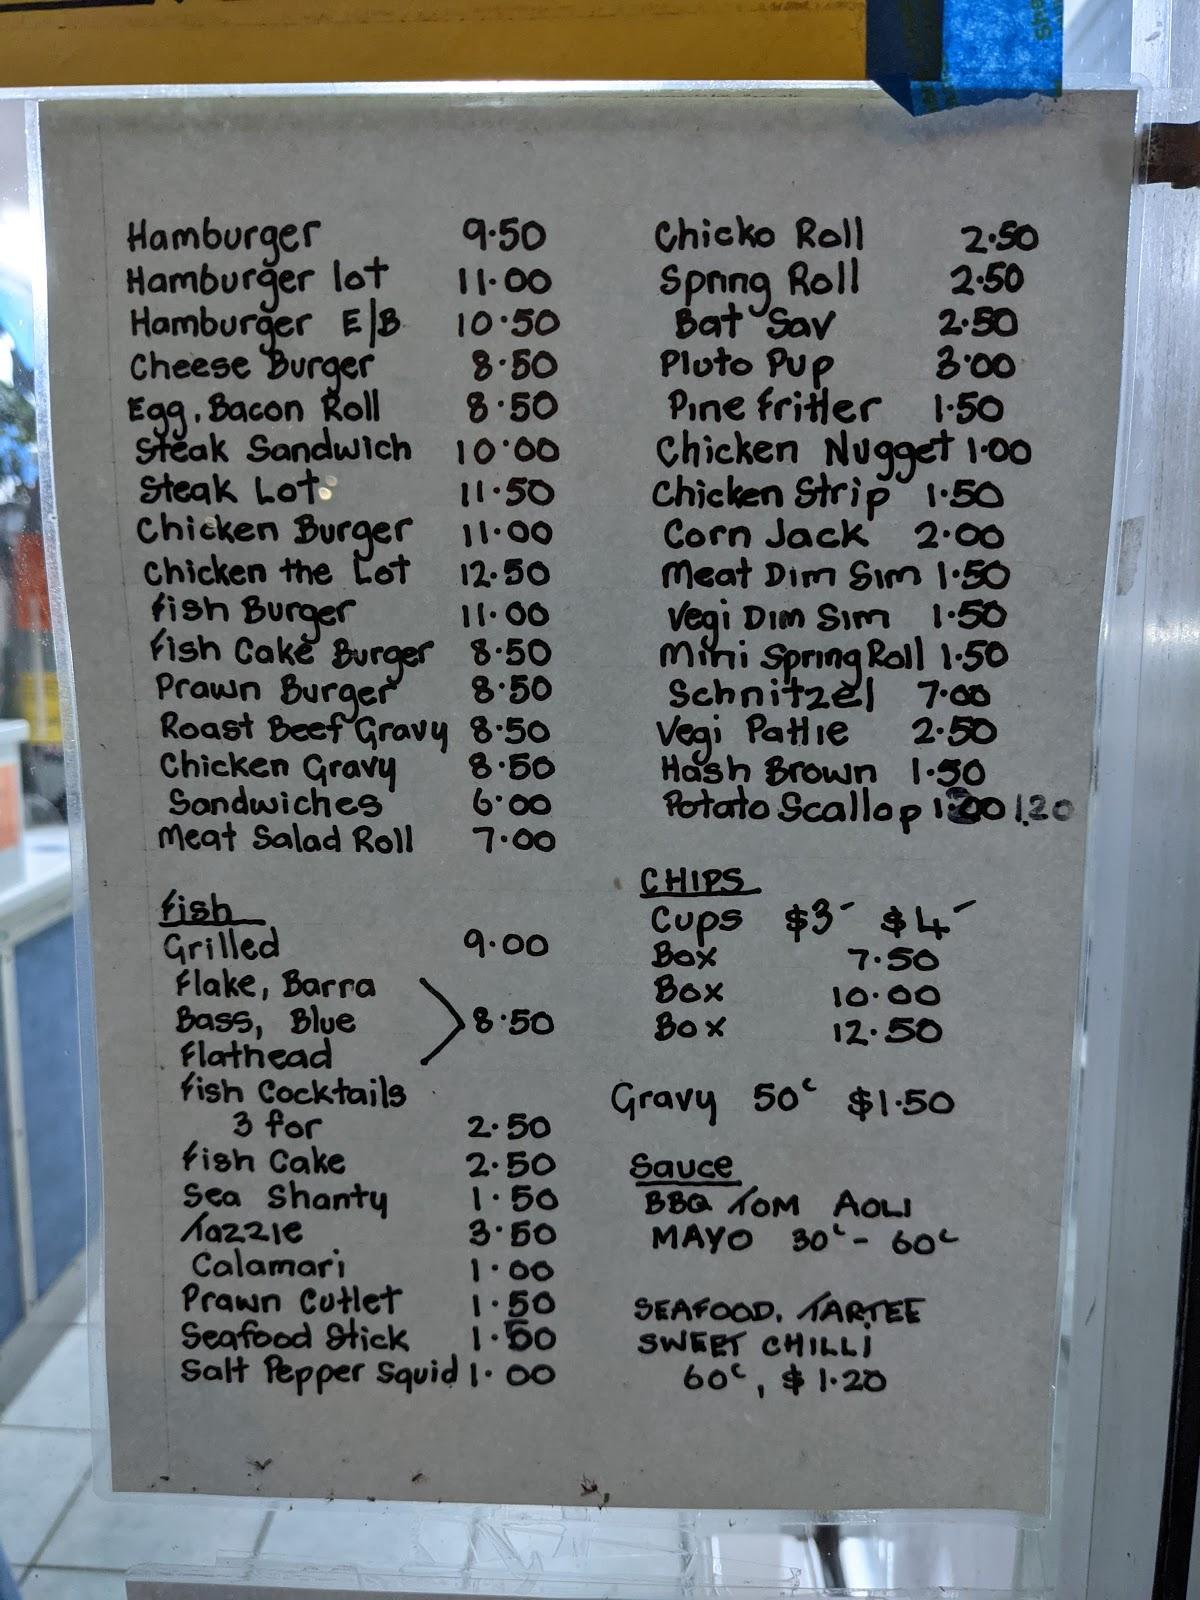 Hamburger 9.50
Hamburger lot 11.00
Hamburger E/B 10.50
Cheese Burger 8.50
Egg, Bacon Roll 8.50
Steak Sandwich 10.00
Steak Lot 11.50
Chicken Burger 11.00
Chicken the Lot 12.50
Fish Burger 11.00
Fish Cake Burger 8.50
Prawn Burger 8.50
Roast Beef Gravy 8.50
Chicken Gravy 8.50
Sandwiches 6.00
Meat Salad Roll 7.00
Fish
Grilled 9.00
Flake, Barra
Bass, Blue 8.50
Flathead
Fish Cocktails
3 for 2.50
Fish Cake 2.50
Sea Shanty 1.50
Tazzie 3.50
Calamari 1.00
Prawn Cutlet 1.50
Seafood Stick 1.50
Salt Pepper Squid 1.00
Chicko Roll 2.50
Spring Roll 2.50
Bat Sav 2.50
Pluto Pup 3.00
Pine fritter 1.50
Chicken Nugget 1.00
Chicken Strip 1.50
Corn Jack 2.00
Meat Dim Sim 1.50
Vegi Dim Sim 1.50
Mini Spring Roll 1.50
Schnitzel 7.00
Vegi Pattie 2.50
Hash Brown 1.50
Potato Scallop 1.20
CHIPS
Cups $3- $4-
Box 7.50
Box 10.00
Box 12.50
Gravy 50c $1.50
Sauce
BBQ TOM AOLI
MAYO 30c - 60c
SEAFOOD, TARTEE
SWEET CHILLI
60c, $1.20